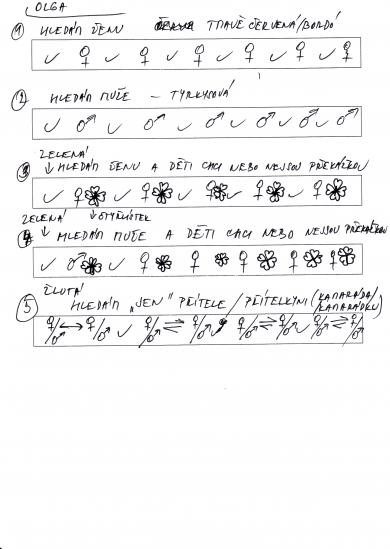 OLGA
1 HLEDÁM ŽENU TMAVĚ ČERVENÁ/BORDÓ
2 HLEDÁM MUŽE – TYRKYSOVÁ
ZELENÁ
3 ↓ HLEDÁM ŽENU A DĚTI CHCI NEBO NEJSOU PŘEKÁŽKOU
ZELENÁ ↓ ČTYŘLÍSTEK
4 ↓ HLEDÁM MUŽE A DĚTI CHCI NEBO NEJSOU PŘEKÁŽKOU
ŽLUTÁ
5 HLEDÁM „JEN" PŘÍTELE/PŘÍTELKYNI (KAMARÁDA/
KAMARÁDKU)